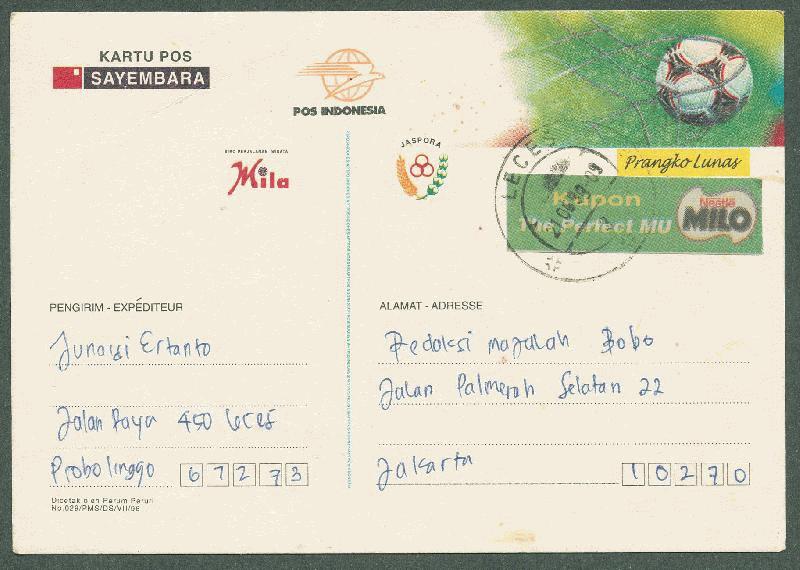 KARTU POS
SAYEMBARA
POS INDONESIA
BIRO PERJALANAN WISATA
Mila
JASPORA
LECES
Prangko Lunas
Kupon
The Perfect MU
Nestle
MILO
PENGIRIM - EXPÉDITEUR
Junaidi Ertanto
Jalan Raya 450 Leces
Probolinggo 67273
Dicetak oleh Perum Peruri
No.029/PMS/DS/VII/98
ALAMAT - ADRESSE
Redaksi majalah Bobo
Jalan Palmerah Selatan 22
Jakarta 10270